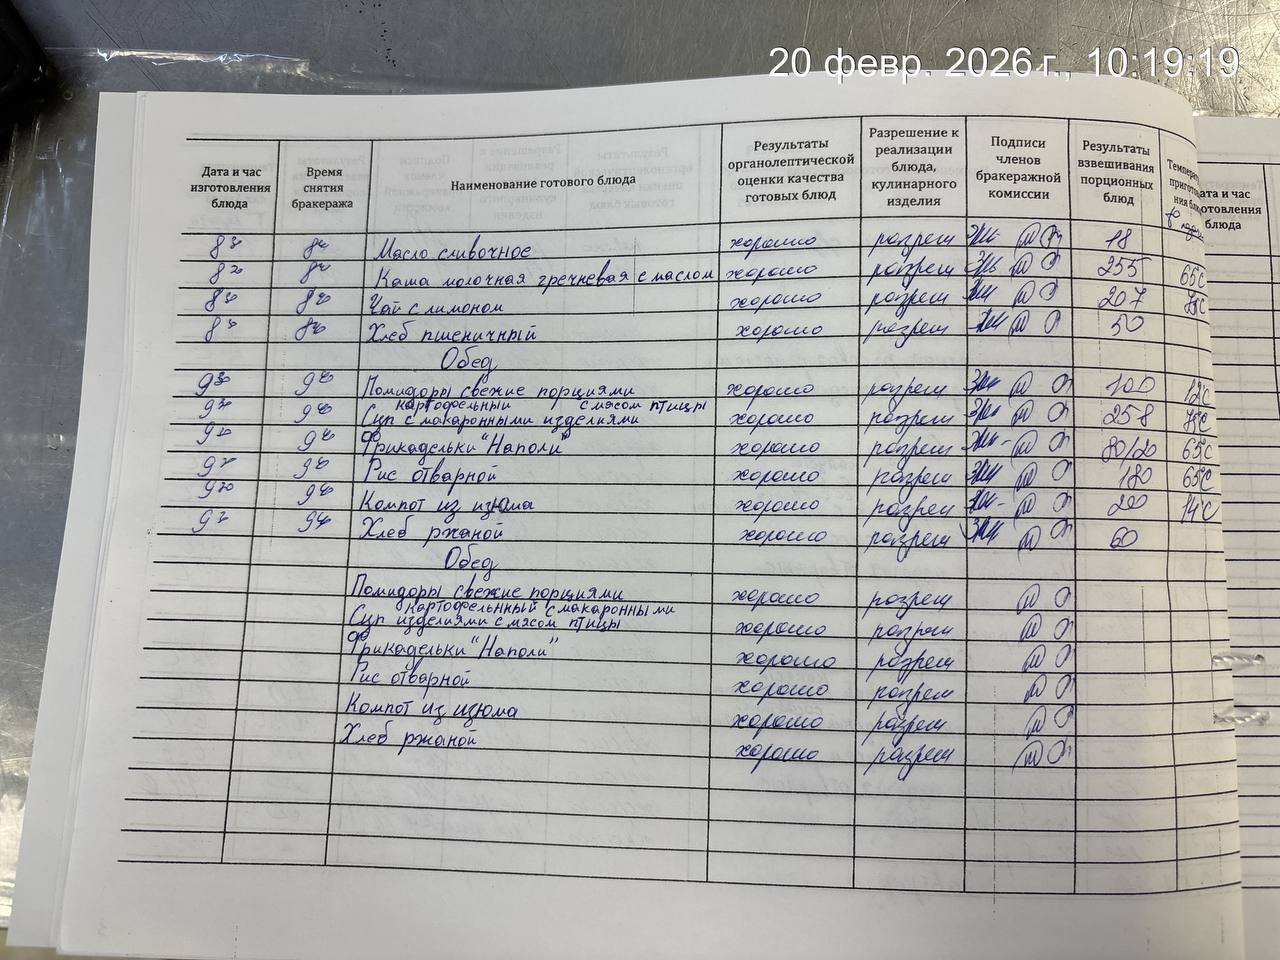 20 февр. 2026 г., 10:19:19
Дата и час изготовления блюда
Время снятия бракеража
Наименование готового блюда
Результаты органолептической оценки качества готовых блюд
Разрешение к реализации блюда, кулинарного изделия
Подписи членов бракеражной комиссии
Результаты взвешивания порционных блюд
Масло сливочное хорошо разреш 18
Каша молочная гречневая с маслом хорошо разреш 255 65°С
Чай с лимоном хорошо разреш 207 75°С
Хлеб пшеничный хорошо разреш 50
Обед
Помидоры свежие порциями хорошо разреш 100 12°С
картофельный с мясом птицы
Суп с макаронными изделиями хорошо разреш 258 75°С
Фрикадельки "Наполи" хорошо разреш 80/20 65°С
Рис отварной хорошо разреш 180 65°С
Компот из изюма хорошо разреш 200 14°С
Хлеб ржаной хорошо разреш 60
Обед
Помидоры свежие порциями хорошо разреш
картофельнный с макаронными
Суп изделиями с мясом птицы хорошо разреш
Фрикадельки "Наполи" хорошо разреш
Рис отварной хорошо разреш
Компот из изюма хорошо разреш
Хлеб ржаной хорошо разреш